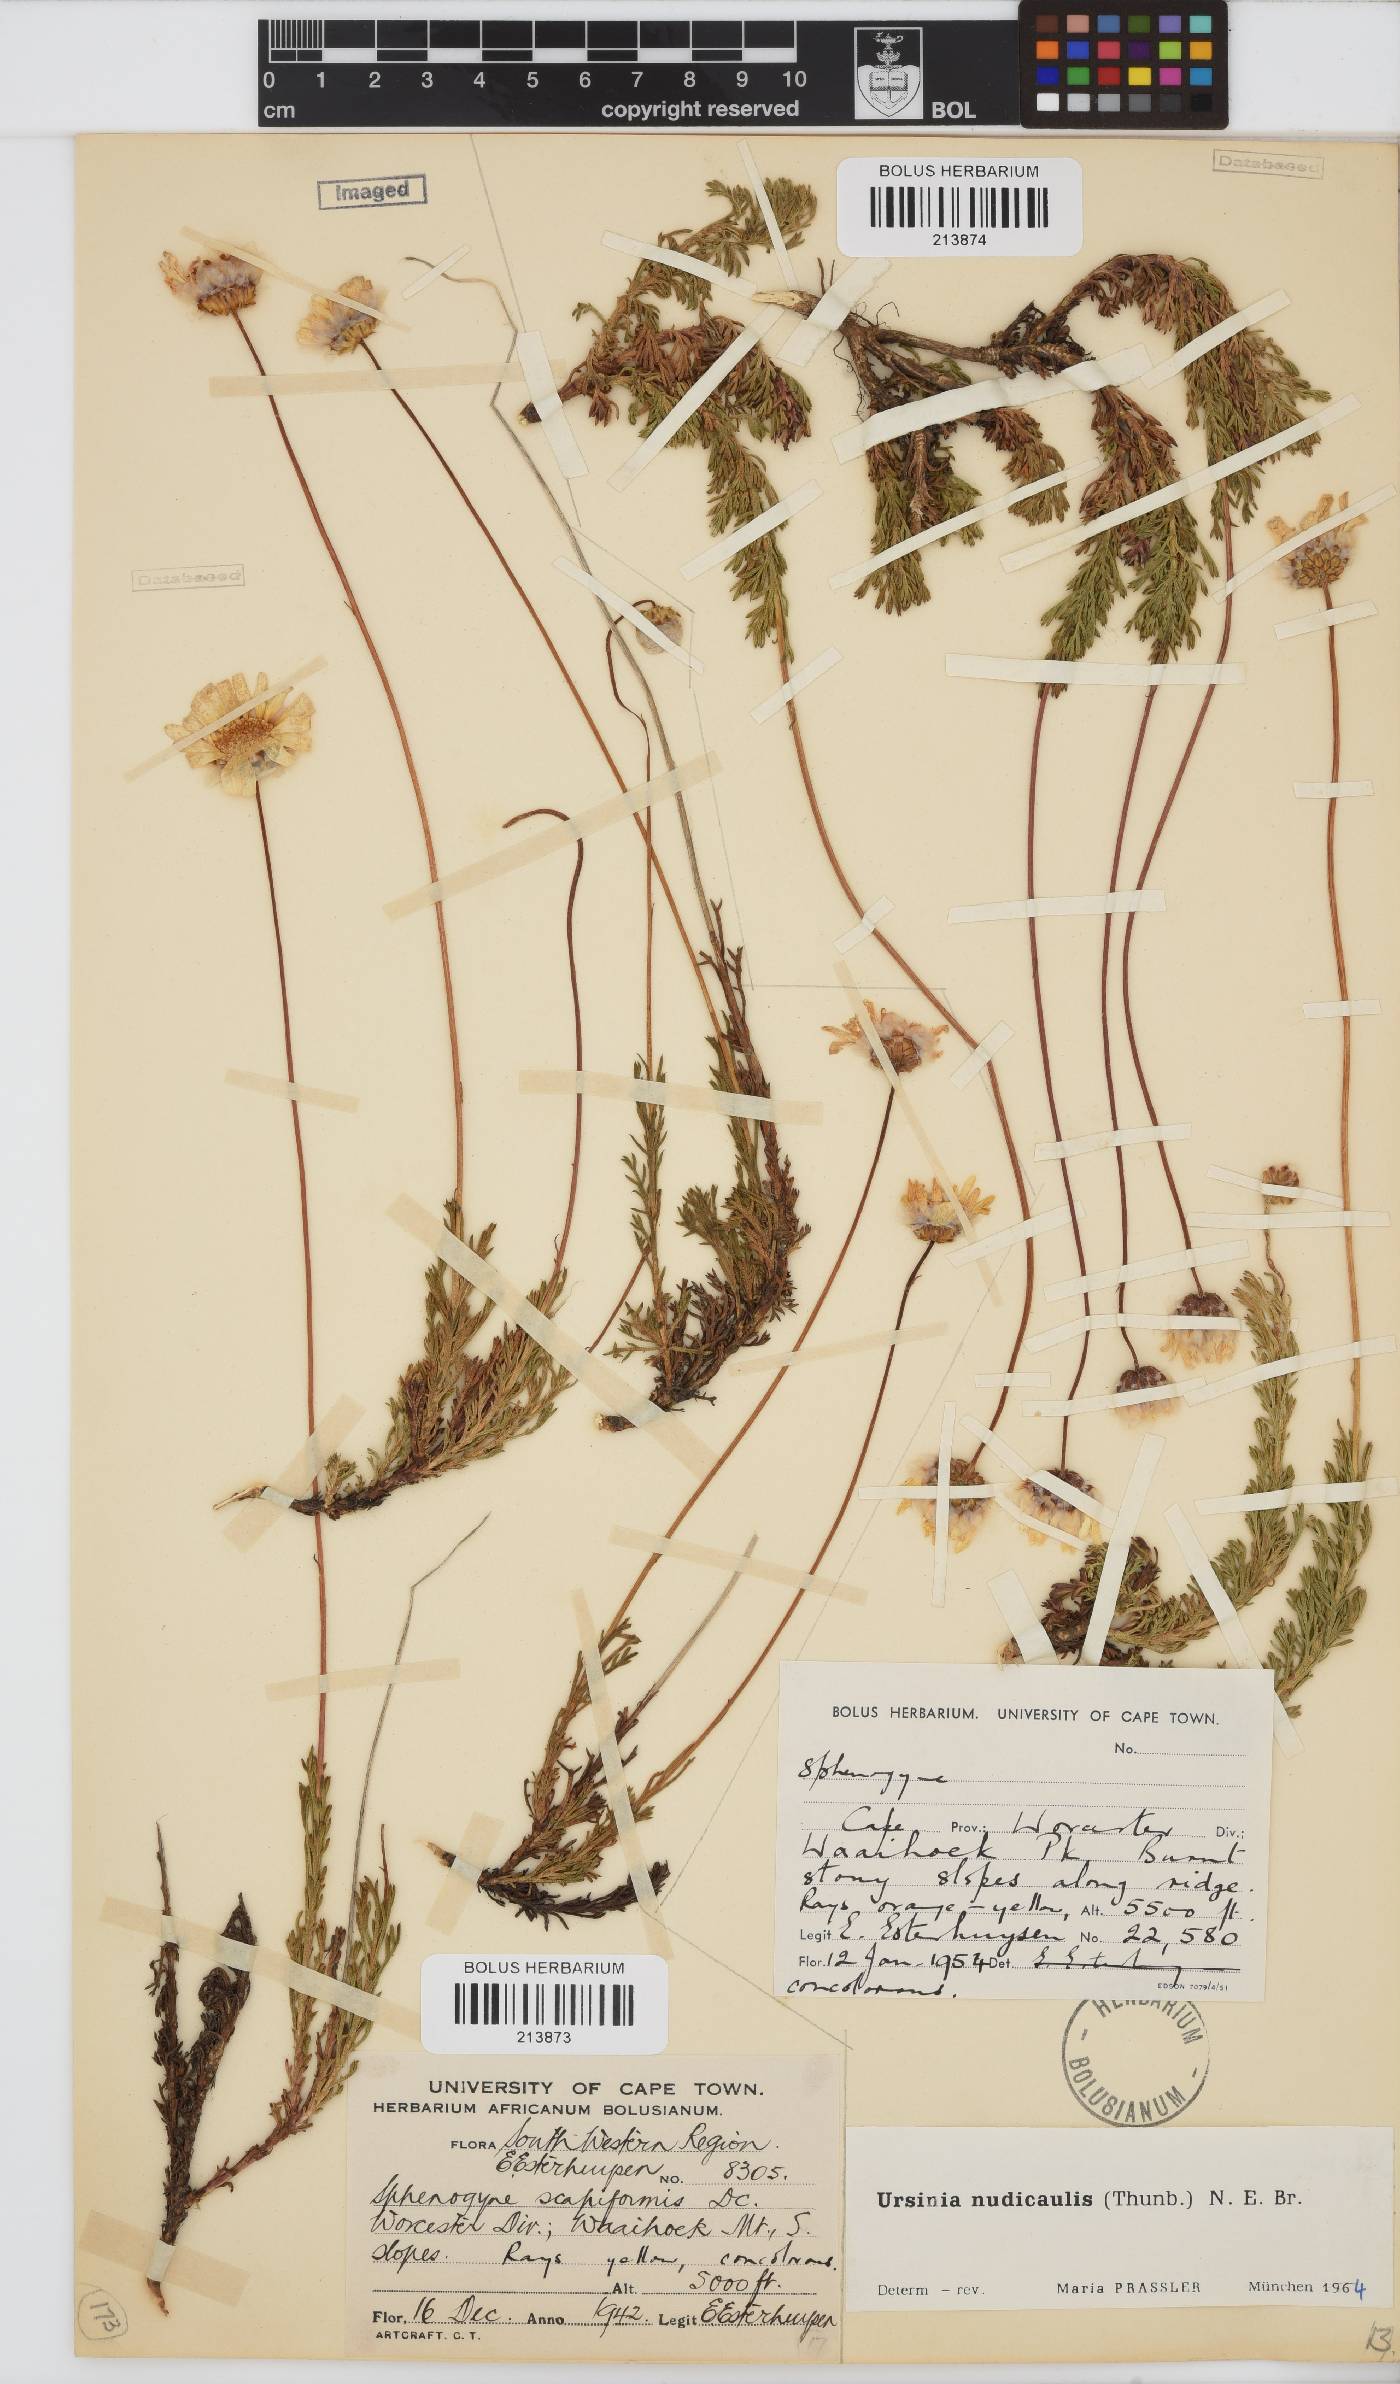 0 1 2 3 4 5 6 7 8 9 10
cm copyright reserved BOL
Imaged
Databased
BOLUS HERBARIUM
213874
Databased
BOLUS HERBARIUM. UNIVERSITY OF CAPE TOWN.
No.
Sphenogyne
Cape Prov.; Worcester Div.;
Waaihoek Pk. Burnt
stony slopes along ridge.
Rays orange-yellow, Alt. 5500 ft.
Legit E. Esterhuysen No. 22,580
Flor. 12 Jan. 1954 Det. E. Esterhuysen
concolorous.
EDSON 7079/4/51
HERBARIUM
BOLUSIANUM
BOLUS HERBARIUM
213873
UNIVERSITY OF CAPE TOWN.
HERBARIUM AFRICANUM BOLUSIANUM.
FLORA South Western Region.
E Esterhuysen No. 8305.
Sphenogyne scapiformis DC.
Worcester Div.; Waaihoek Mt., S.
slopes. Rays yellow, concolorous.
Alt. 5000 ft.
Flor. 16 Dec. Anno 1942. Legit E Esterhuysen
ARTCRAFT. C. T.
Ursinia nudicaulis (Thunb.) N. E. Br.
Determ – rev. Maria PRASSLER München 1964
173
13.